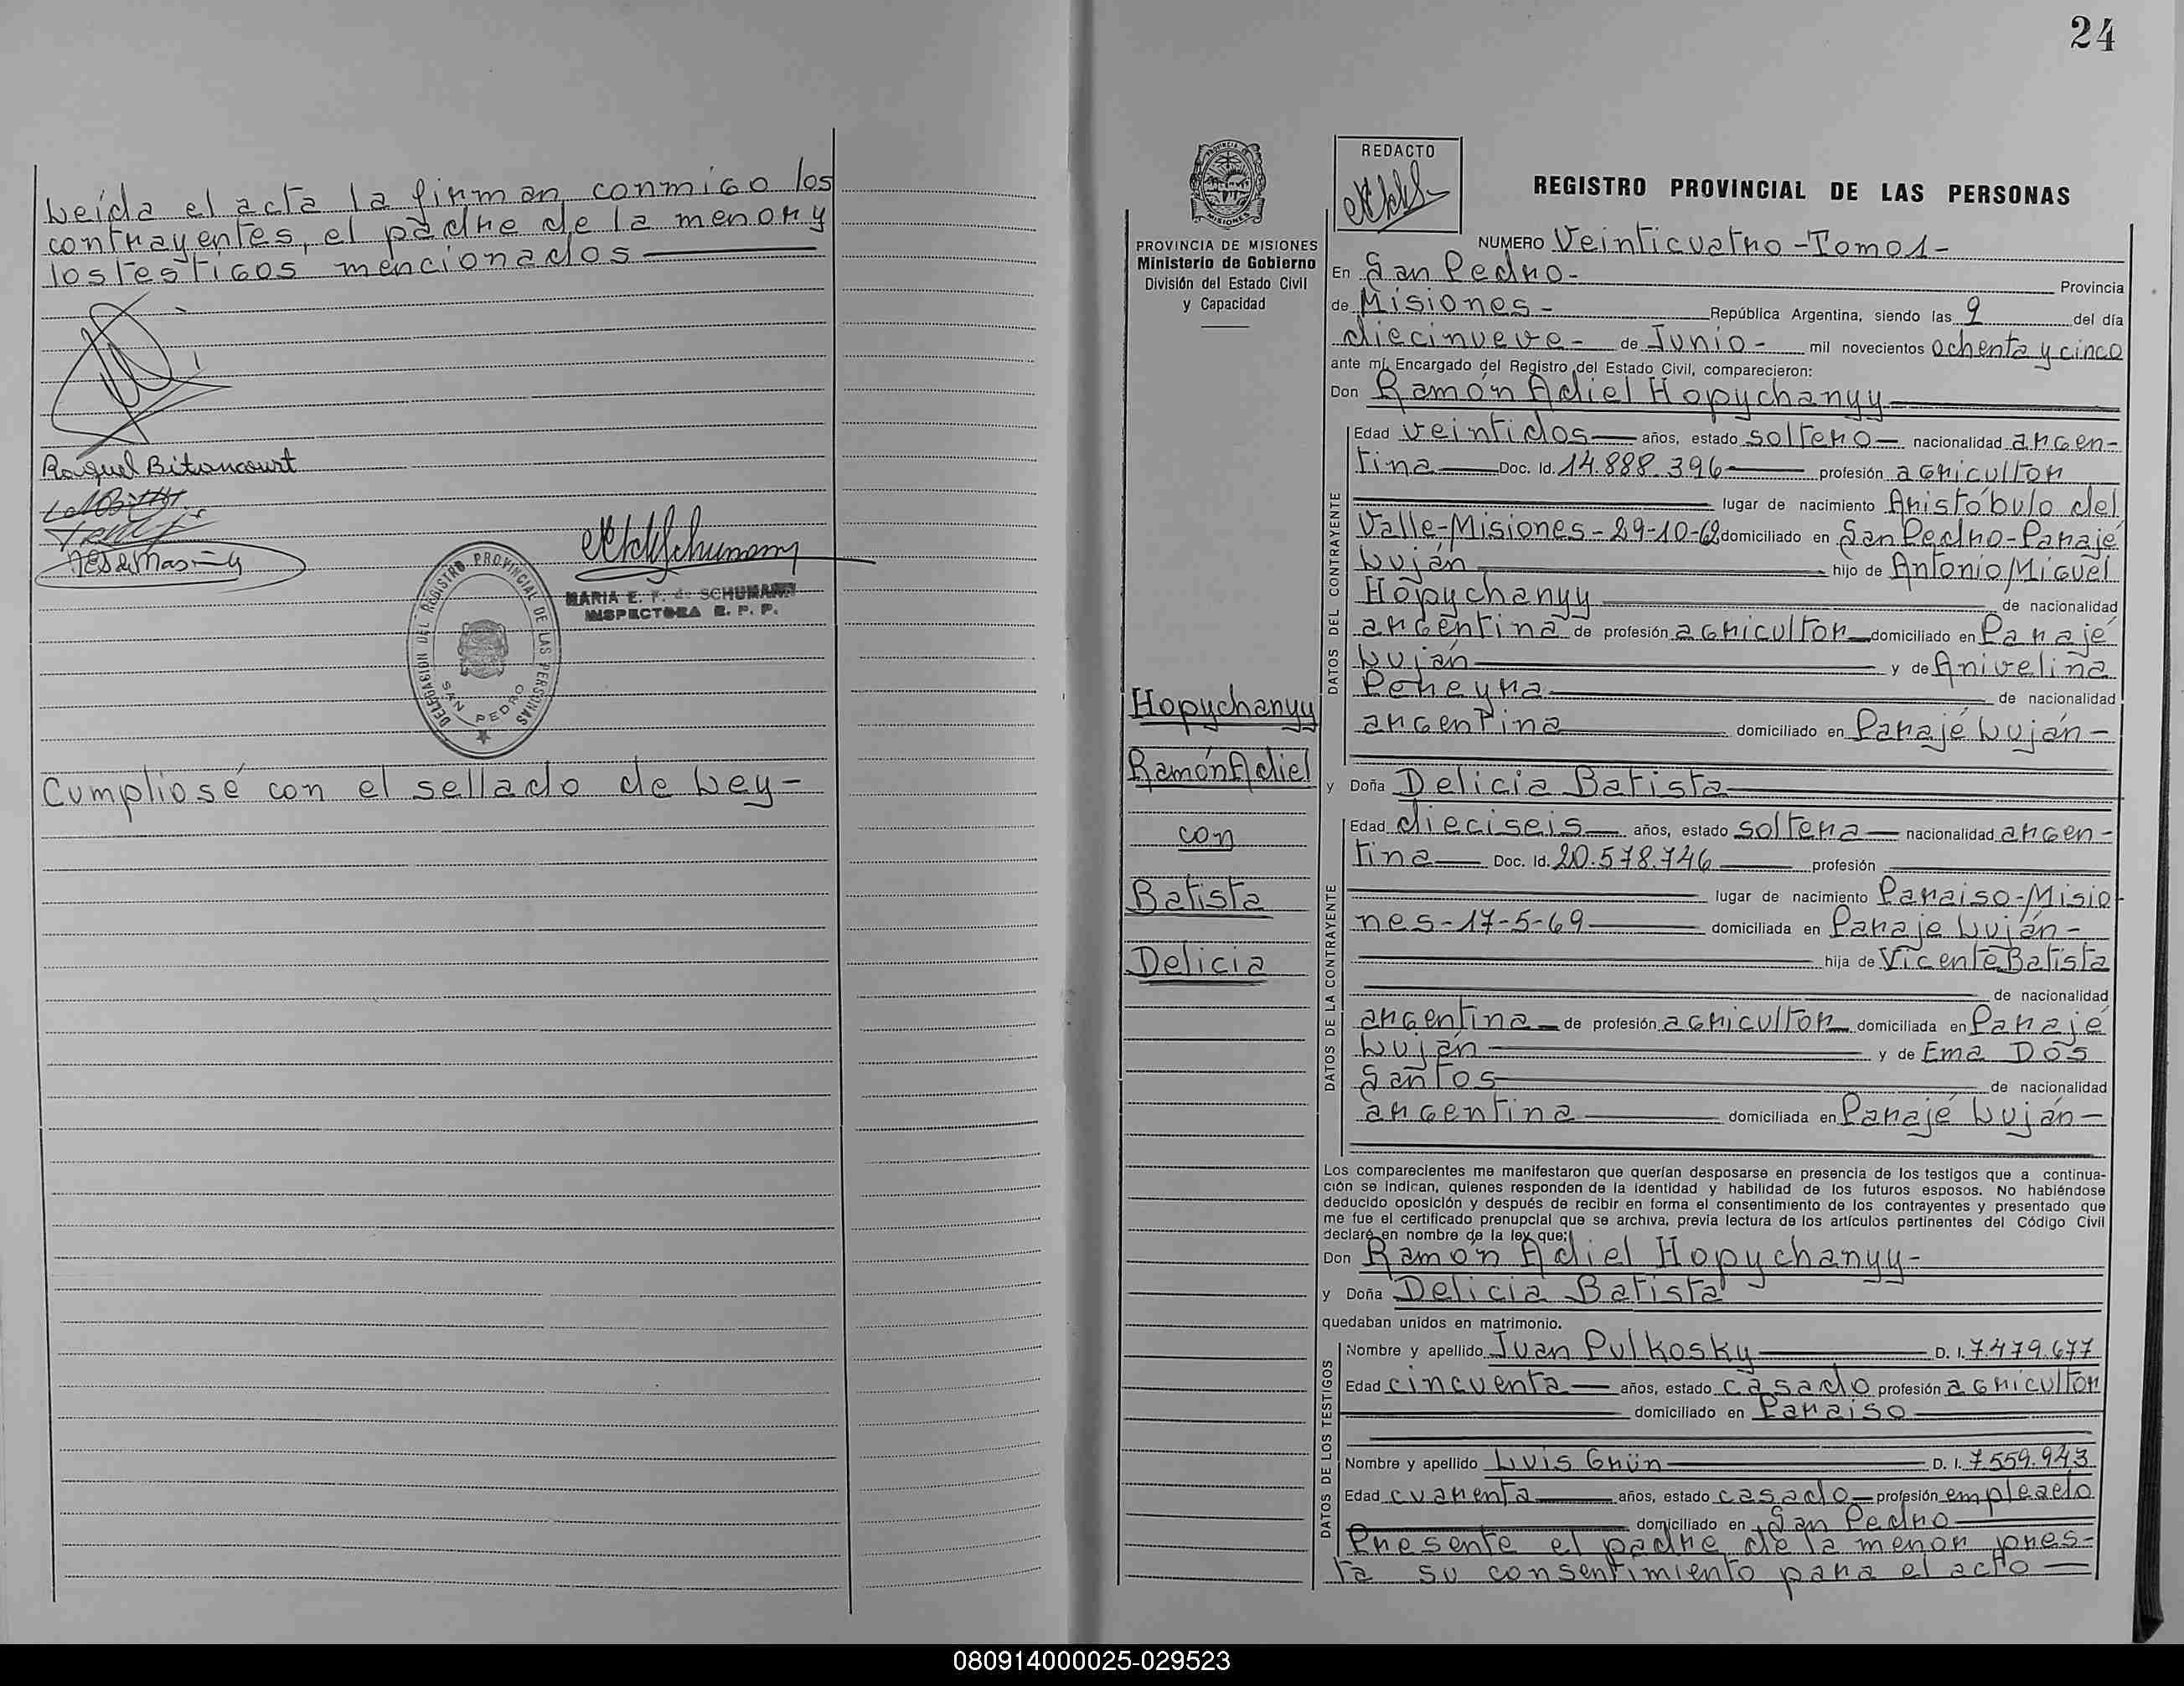 Leída el acta la firman conmigo los
contrayentes, el padre de la menor y
los testigos mencionados
Raquel Bitancourt
MARIA E. F. de SCHUMANN
INSPECTORA R. P. P.
DELEGACION DEL REGISTRO PROVINCIAL DE LAS PERSONAS
SAN PEDRO
Cumpliosé con el sellado de Ley-
24
PROVINCIA DE MISIONES
Ministerio de Gobierno
División del Estado Civil
y Capacidad
Hopychanyy
Ramón Adiel
con
Batista
Delicia
REDACTO
REGISTRO PROVINCIAL DE LAS PERSONAS
NUMERO Veinticuatro-Tomo 1-
En San Pedro- Provincia
de Misiones- República Argentina, siendo las 9 del día
diecinueve- de Junio- mil novecientos ochenta y cinco
ante mí, Encargado del Registro del Estado Civil, comparecieron:
Don Ramón Adiel Hopychanyy
DATOS DEL CONTRAYENTE
Edad veintidos años, estado soltero nacionalidad argen-
tina Doc. Id. 14.888.396 profesión agricultor
lugar de nacimiento Aristóbulo del
Valle-Misiones-29-10-62 domiciliado en San Pedro-Parajé
Luján hijo de Antonio Miguel
Hopychanyy de nacionalidad
argentina de profesión agricultor domiciliado en Parajé
Luján y de Anivelina
Pereyra de nacionalidad
argentina domiciliado en Parajé Luján-
y Doña Delicia Batista
DATOS DE LA CONTRAYENTE
Edad dieciseis años, estado soltera nacionalidad argen-
tina Doc. Id. 20.578.746 profesión
lugar de nacimiento Paraiso-Misio
nes-17-5-69 domiciliada en Paraje Luján-
hija de Vicente Batista
de nacionalidad
argentina de profesión agricultor domiciliada en Parajé
Luján y de Ema Dos
Santos de nacionalidad
argentina domiciliada en Parajé Luján-
Los comparecientes me manifestaron que querían desposarse en presencia de los testigos que a continua-
ción se indican, quienes responden de la identidad y habilidad de los futuros esposos. No habiéndose
deducido oposición y después de recibir en forma el consentimiento de los contrayentes y presentado que
me fue el certificado prenupcial que se archiva, previa lectura de los artículos pertinentes del Código Civil
declaré en nombre de la ley que:
Don Ramón Adiel Hopychanyy-
y Doña Delicia Batista
quedaban unidos en matrimonio.
DATOS DE LOS TESTIGOS
Nombre y apellido Juan Pulkosky D. I. 7.479.677
Edad cincuenta años, estado casado profesión agricultor
domiciliado en Paraiso
Nombre y apellido Luis Grün D. I. 7.559.943
Edad cuarenta años, estado casado profesión empleado
domiciliado en San Pedro
Presente el padre de la menor pres-
ta su consentimiento para el acto
080914000025-029523